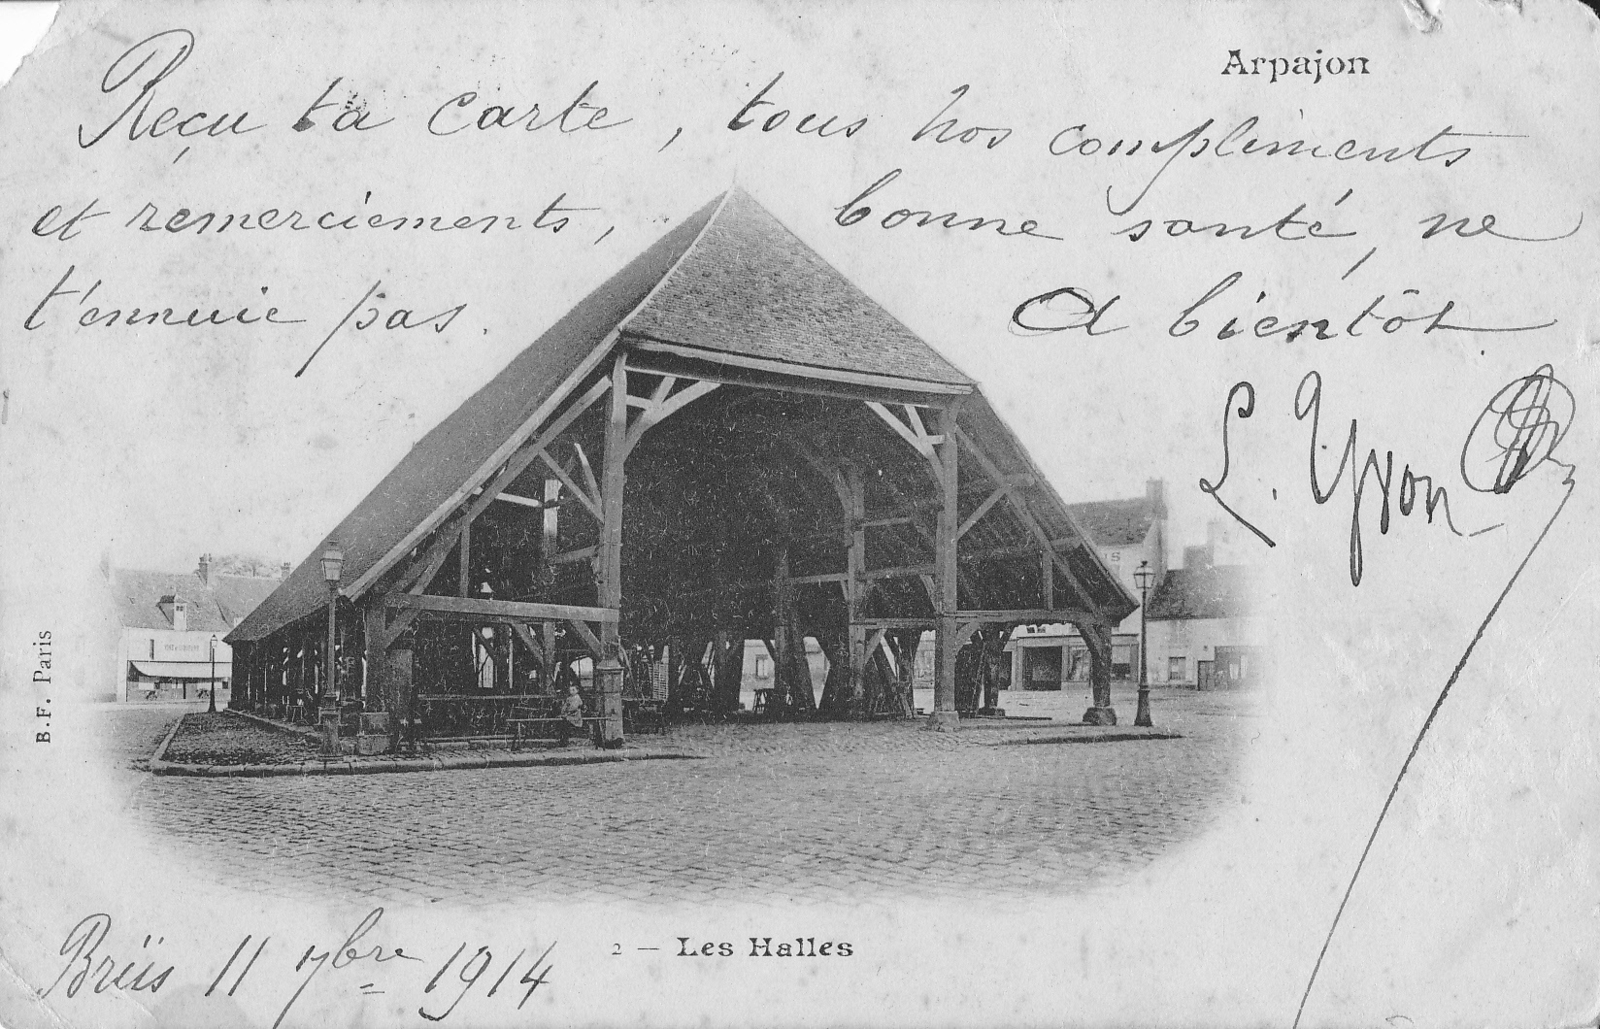 Arpajon
Reçu ta carte, tous nos compliments
et remerciements, bonne santé, ne
t'ennuie pas. A bientôt
L. Yvon
B. F. Paris
2 — Les Halles
11 7bre 1914